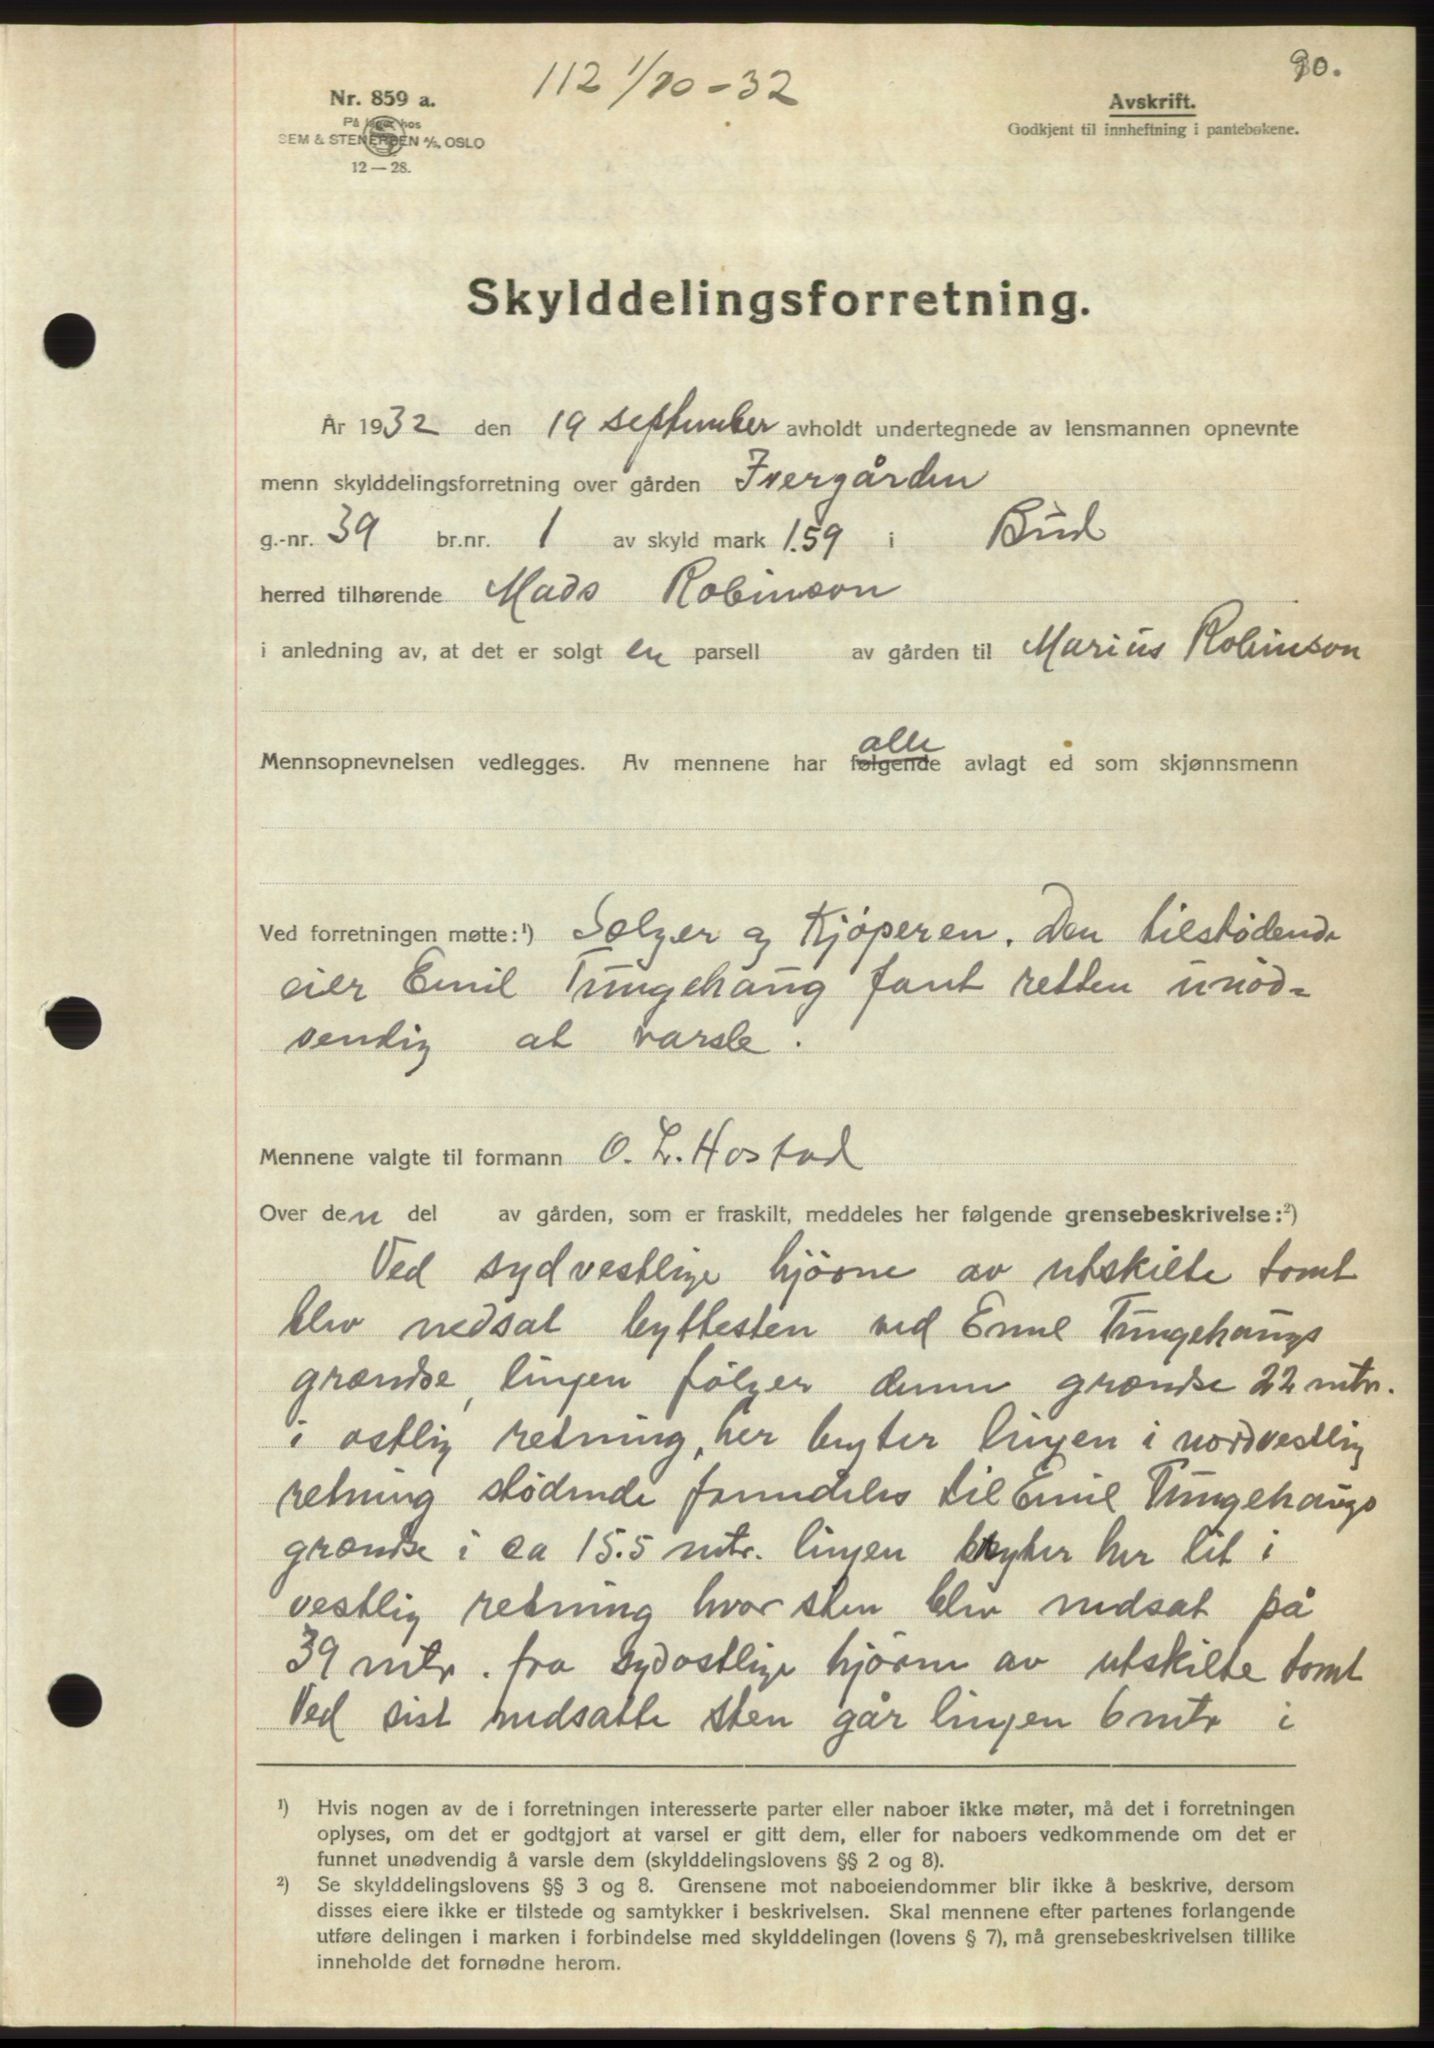 112 1/10-32
90.
Nr. 859 a.
På lager hos
SEM & STENERSEN A/S, OSLO
12 — 28.
Avskrift.
Godkjent til innheftning i pantebøkene.
Skylddelingsforretning.
År 1932 den 19 september avholdt undertegnede av lensmannen opnevnte
menn skylddelingsforretning over gården Ivergården
g.-nr. 39 br.nr. 1 av skyld mark 1.59 i Bud
herred tilhørende Mads Robinson
i anledning av, at det er solgt en parsell av gården til Marius Robinson
alle
Mennsopnevnelsen vedlegges. Av mennene har følgende avlagt ed som skjønnsmenn
Ved forretningen møtte:¹) Sælger og Kjøperen. Den tilstødende
eier Emil Tungehaug fant retten unød-
vendig at varsle.
Mennene valgte til formann O. L. Hostad
Over den del av gården, som er fraskilt, meddeles her følgende grensebeskrivelse:²)
Ved sydvestlige hjörne av utskilte tomt
blev nedsat byttesten ved Emil Tungehaugs
grændse, linjen følger denne grændse 22 mtr.
i østlig retning, her bryter linjen i nordvestlig
retning stødende fremdeles til Emil Tungehaugs
grændse i ca 15.5 mtr. linjen bryter her lit i
vestlig retning hvor sten blev nedsat på
39 mtr. fra sydøstlige hjörne av utskilte tomt
Ved sist nedsatte sten går linjen 6 mtr i
¹) Hvis nogen av de i forretningen interesserte parter eller naboer ikke møter, må det i forretningen
oplyses, om det er godtgjort at varsel er gitt dem, eller for naboers vedkommende om det er
funnet unødvendig å varsle dem (skylddelingslovens §§ 2 og 8).
²) Se skylddelingslovens §§ 3 og 8. Grensene mot naboeiendommer blir ikke å beskrive, dersom
disses eiere ikke er tilstede og samtykker i beskrivelsen. Skal mennene efter partenes forlangende
utføre delingen i marken i forbindelse med skylddelingen (lovens § 7), må grensebeskrivelsen tillike
inneholde det fornødne herom.